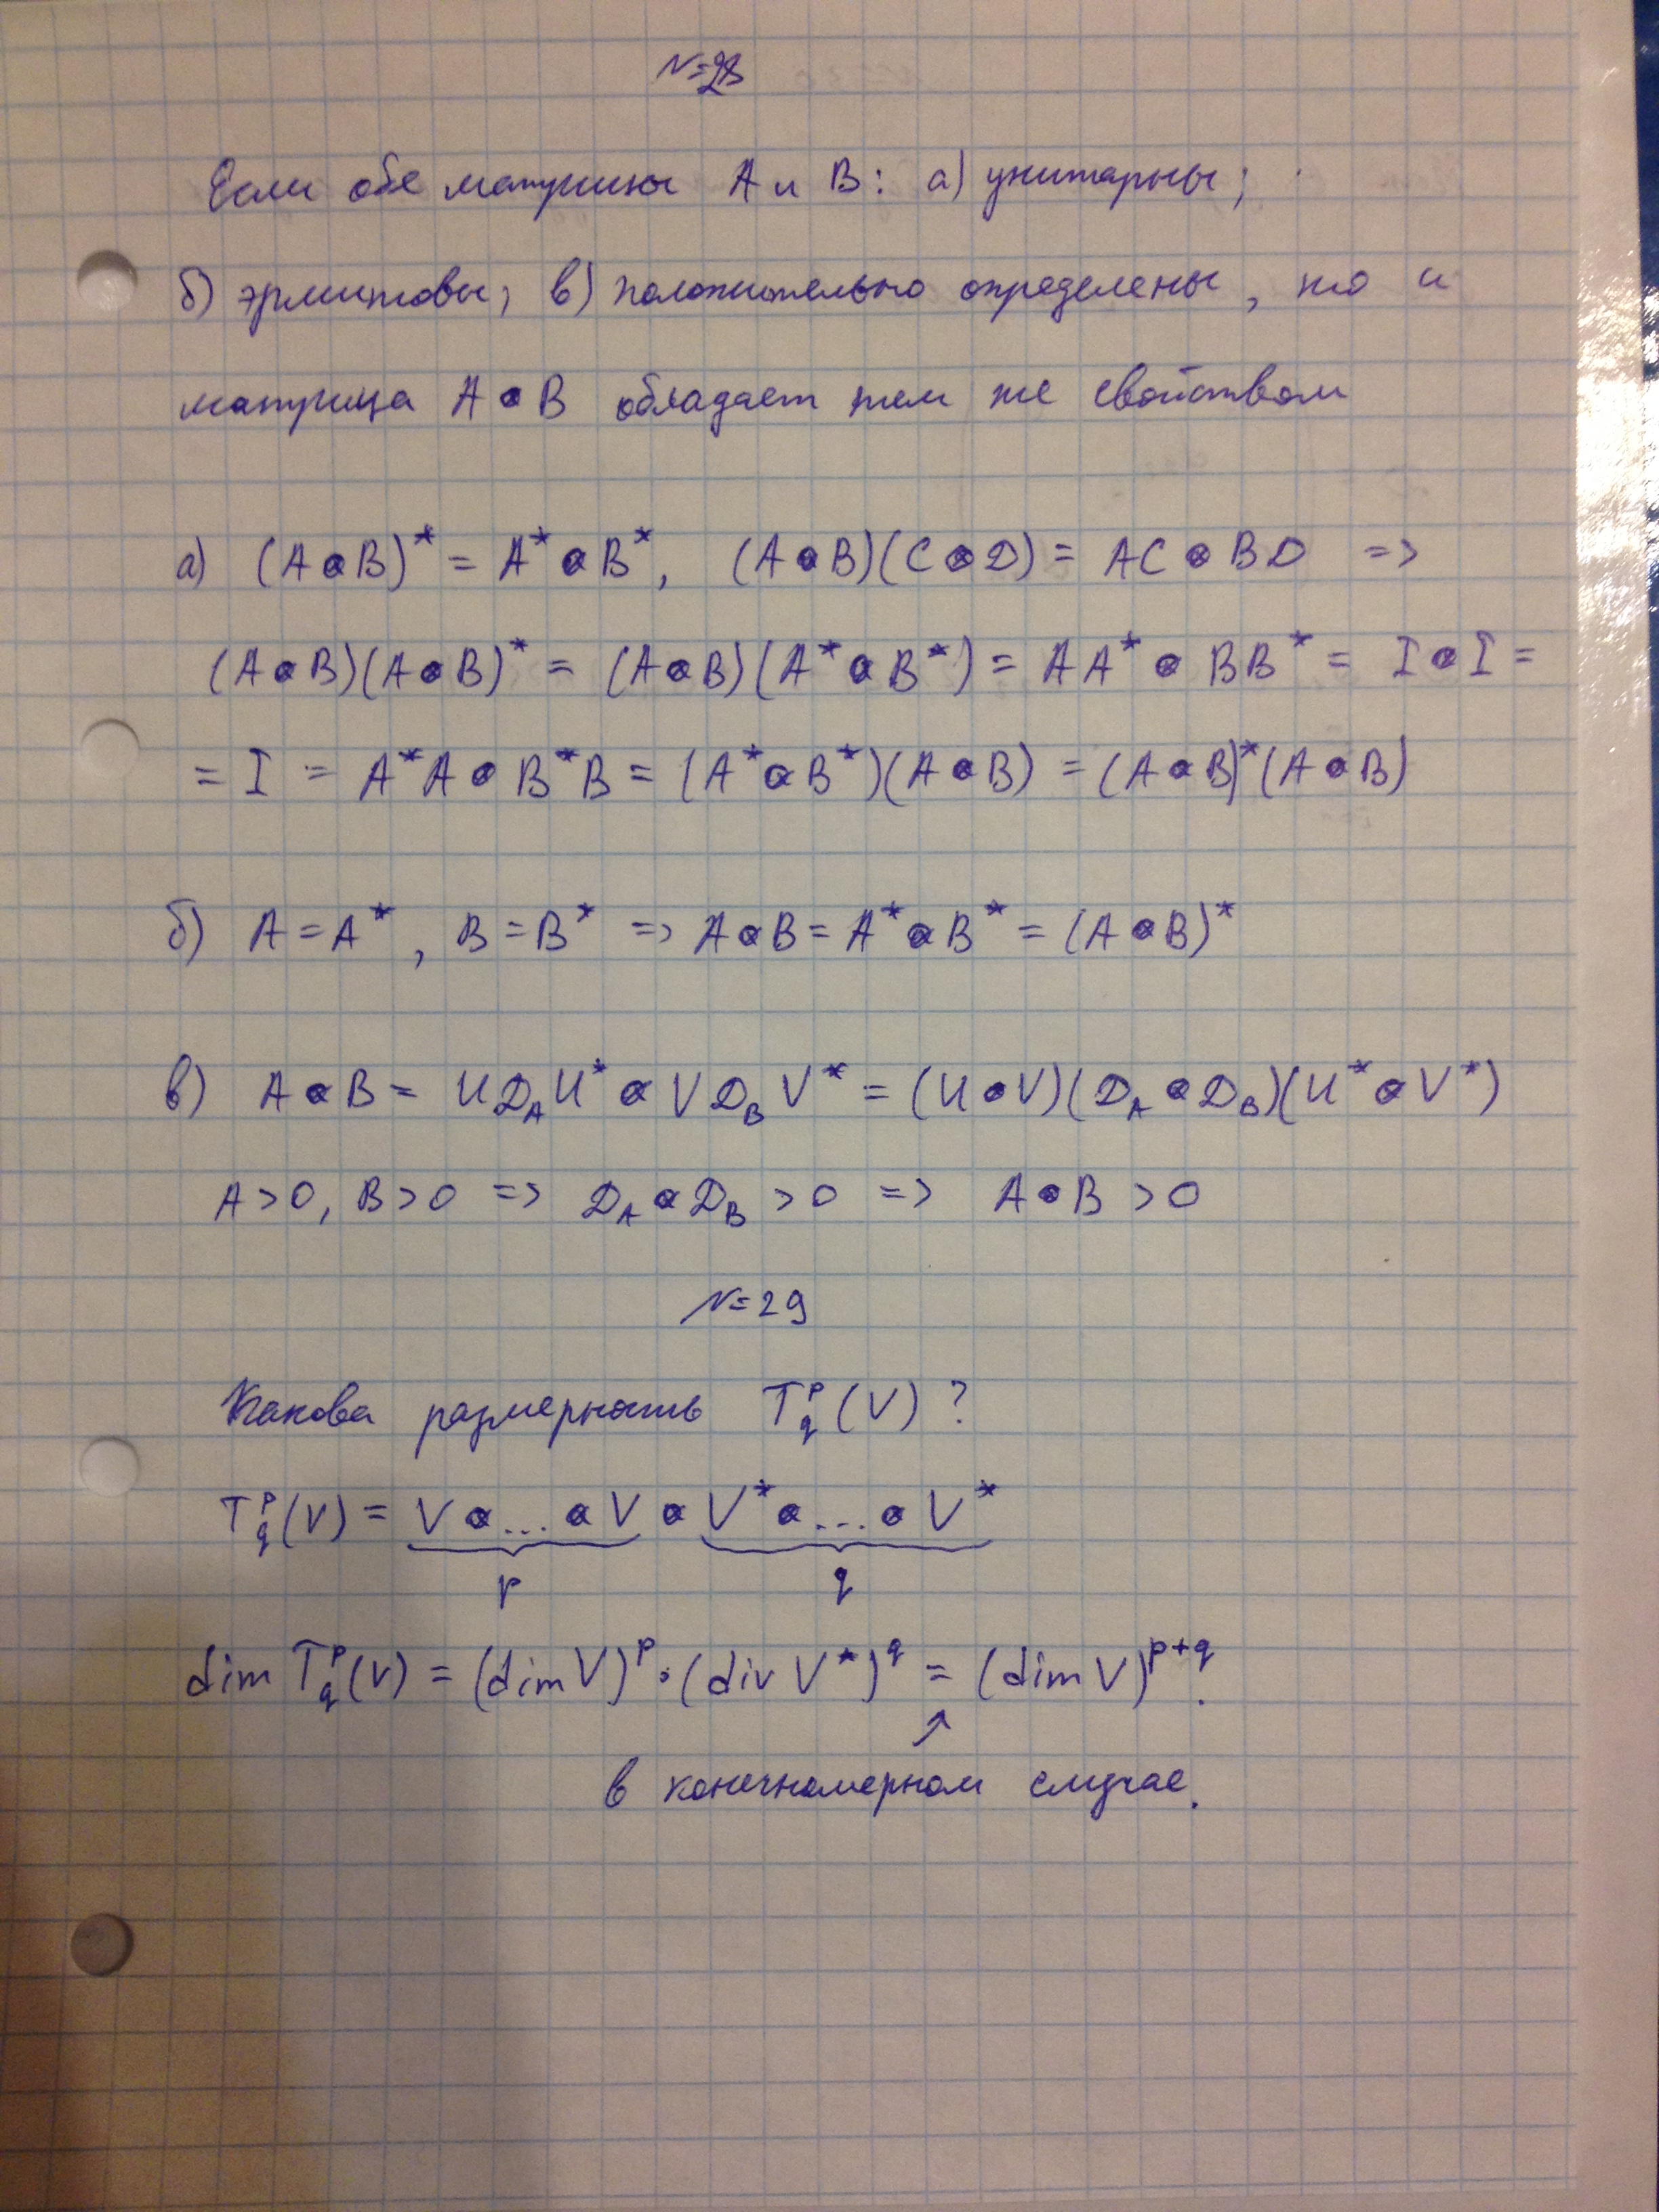 N=28
Если обе матрицы A и B: а) унитарны;
б) эрмитовы; в) положительно определены, то и
матрица A ⊗ B обладает тем же свойством
а) (A ⊗ B)* = A* ⊗ B*, (A ⊗ B)(C ⊗ D) = AC ⊗ BD =>
(A ⊗ B)(A ⊗ B)* = (A ⊗ B)(A* ⊗ B*) = AA* ⊗ BB* = I ⊗ I =
= I = A*A ⊗ B*B = (A* ⊗ B*)(A ⊗ B) = (A ⊗ B)*(A ⊗ B)
б) A = A*, B = B* => A ⊗ B = A* ⊗ B* = (A ⊗ B)*
в) A ⊗ B = U D_A U* ⊗ V D_B V* = (U ⊗ V)(D_A ⊗ D_B)(U* ⊗ V*)
A > 0, B > 0 => D_A ⊗ D_B > 0 => A ⊗ B > 0
N=29
Какова размерность T^p_q(V)?
T^p_q(V) = V ⊗ ... ⊗ V ⊗ V* ⊗ ... ⊗ V*
p q
dim T^p_q(V) = (dim V)^p · (div V*)^q = (dim V)^{p+q}.
↗
в конечномерном случае.